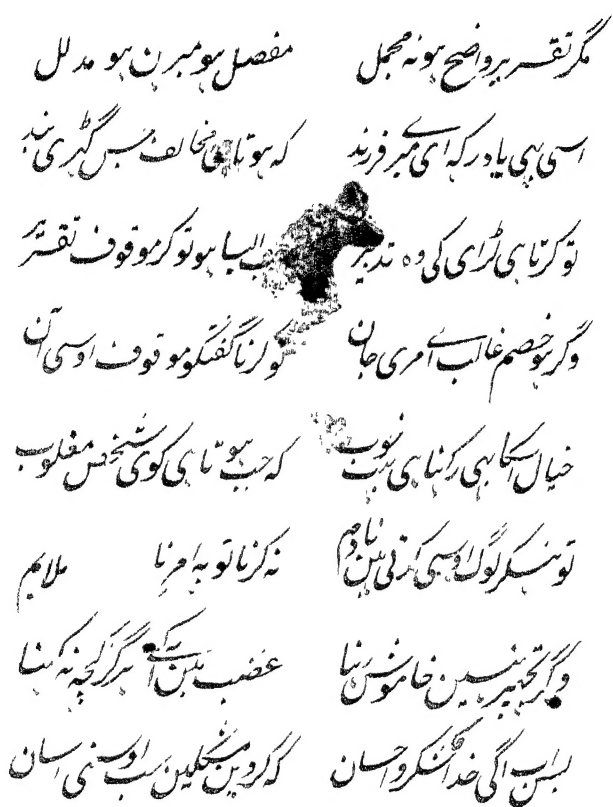 مگر تقریر واضح ہو نہ مجمل مفصل ہو مبرہن ہو مدلل
اسی بہی یاد رکہ ای میر فرزند کہ ہوتا ہی مخالف جس گہڑی بند
تو کرتا ہی لڑای کی وہ تدبیر ایسا ہو تو کر موقوف تقریر
وگر ہو خصم غالب اے مری جان تو کرنا گفتگو موقوف اوسی آن
خیال اسکا بہی رکہنا ہی بہت خوب کہ جب ہوتا ہی کوی شخص مغلوب
تو ہنسکر لوگ اوسی کرتی ہین نادم نہ کرنا تو یہ امر نا ملایم
وگر تجہپر ہنسین خاموش رہنا غضب مین آکے ہرگز کچہ نہ کہنا
بس اب اگی خدا کا شکر و احسان کہ کر دین مشکلین سب اوسنی اسان